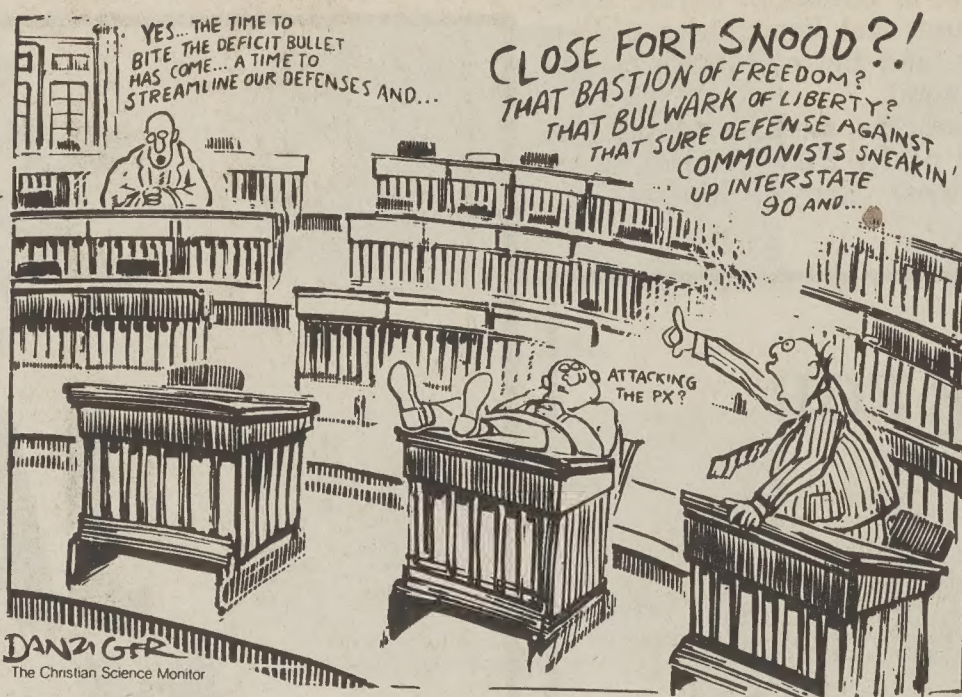 YES... THE TIME TO
BITE THE DEFICIT BULLET
HAS COME... A TIME TO
STREAMLINE OUR DEFENSES AND...
CLOSE FORT SNOOD?!
THAT BASTION OF FREEDOM?
THAT BULWARK OF LIBERTY?
THAT SURE DEFENSE AGAINST
COMMONISTS SNEAKIN'
UP INTERSTATE
90 AND...
ATTACKING
THE PX?
DANZIGER
The Christian Science Monitor